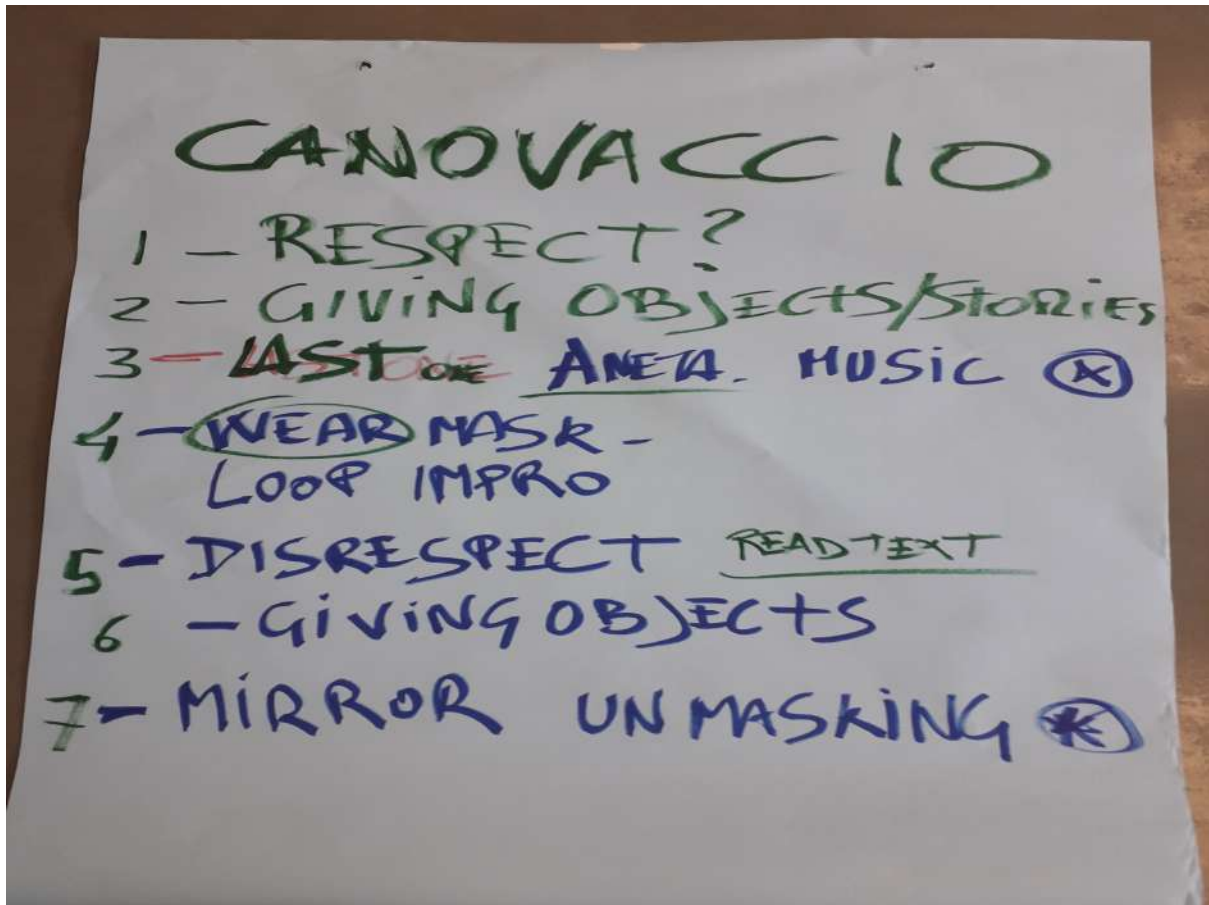 CANOVACCIO
1 - RESPECT?
2 - GIVING OBJECTS/STORIES
3 - LAST ONE ANETA. MUSIC
4 - WEAR MASK -
LOOP IMPRO
5 - DISRESPECT READ TEXT
6 - GIVING OBJECTS
7 - MIRROR UNMASKING